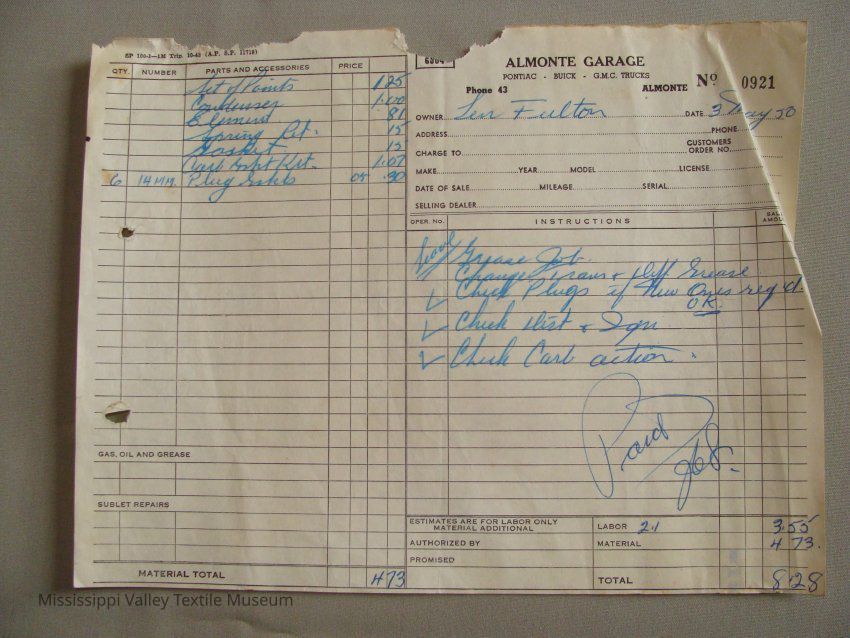 SP 100-1-1M Trip. 10-48 (A.P. S.P. 11719)
QTY. NUMBER PARTS AND ACCESSORIES PRICE
Set of Points 1.25
Condenser 1.00
Element 81
Spring Ret. 15
Gasket 15
Carb Gskt Kit. 1.07
6 14 MM. Plug Gskts 05 .30
GAS, OIL AND GREASE
SUBLET REPAIRS
MATERIAL TOTAL 473
6864
ALMONTE GARAGE
PONTIAC - BUICK - G.M.C. TRUCKS
Phone 43 ALMONTE No 0921
OWNER Len Fulton DATE 3 May 50
ADDRESS PHONE
CHARGE TO CUSTOMERS ORDER NO.
MAKE YEAR MODEL LICENSE
DATE OF SALE MILEAGE SERIAL
SELLING DEALER
OPER. No. INSTRUCTIONS SALE AMOU
Grease Job.
Change Trans & Diff Grease
Check Plugs if New Ones req'd.
OK.
Check Dist & Ign
Check Carb action.
Paid
ESTIMATES ARE FOR LABOR ONLY
MATERIAL ADDITIONAL LABOR 2.1 3.55
AUTHORIZED BY MATERIAL 4 73.
PROMISED
TOTAL 8.28
Mississippi Valley Textile Museum